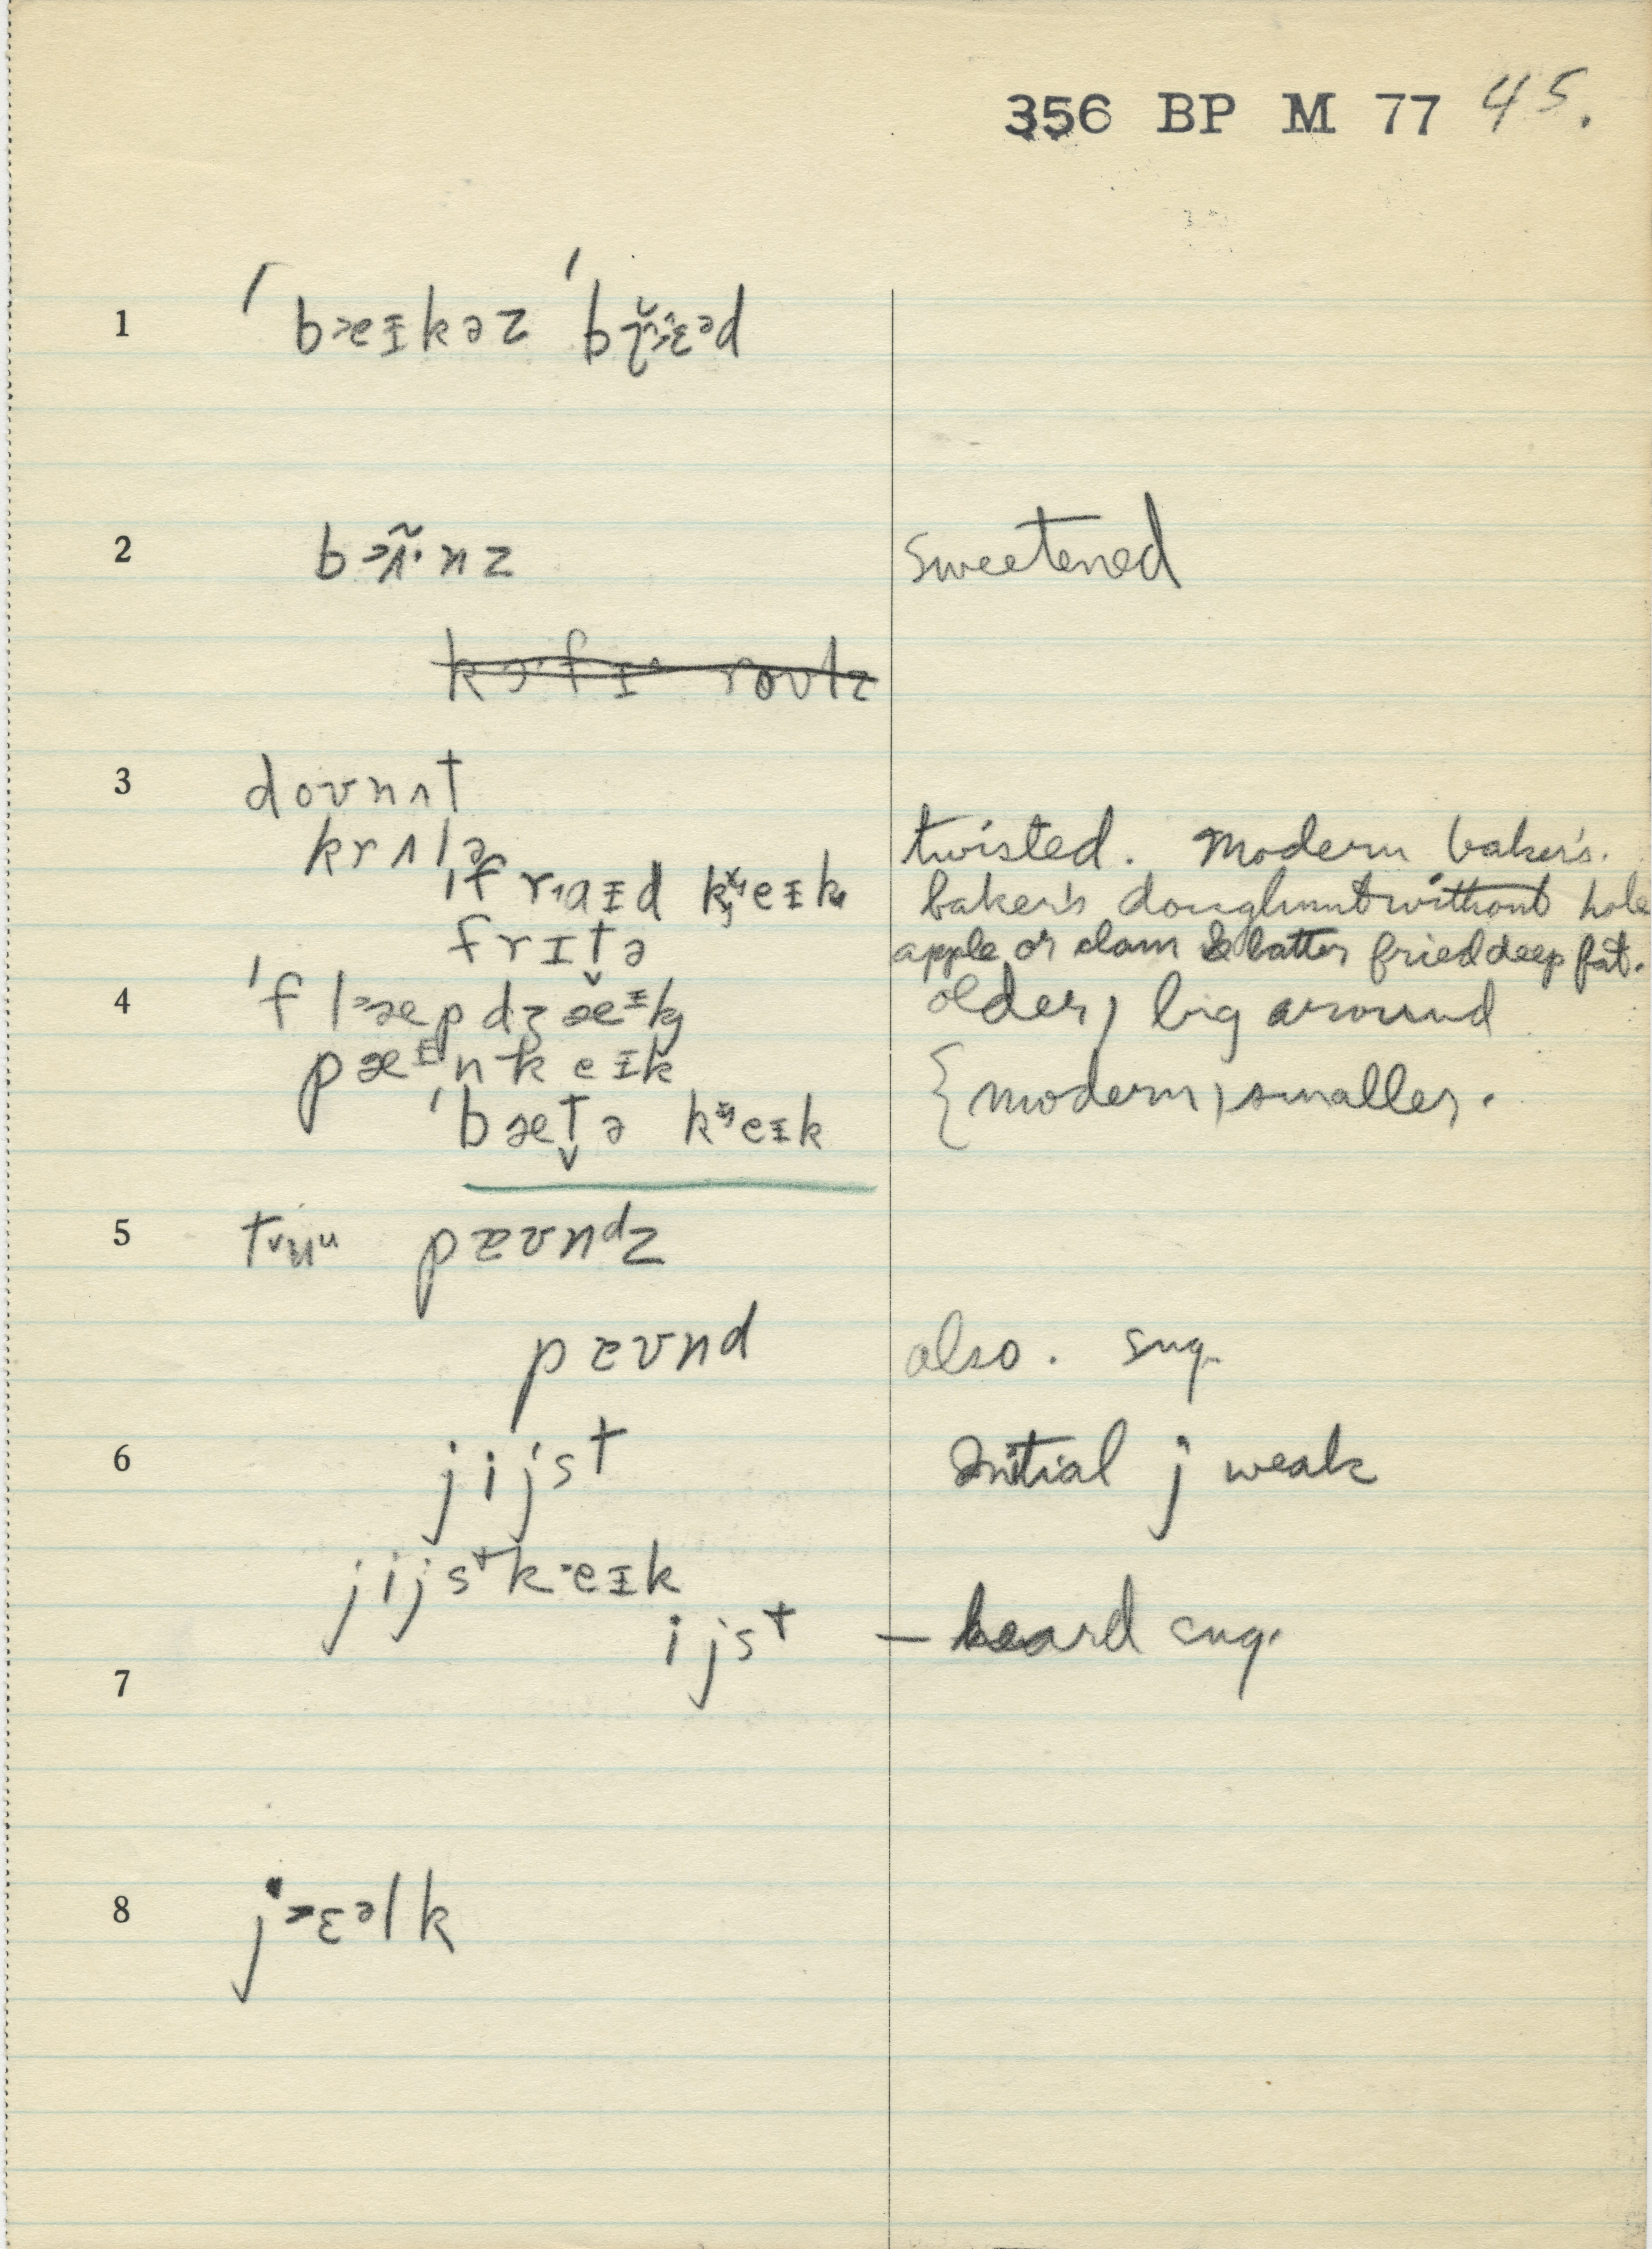 356 BP M 77 45.
1 ˈbæɪkəz ˈbɛəd
2 bɜ̃·nz sweetened
3 doʊnʌt
krʌlə twisted. Modern baker's.
ˈfraɪd keɪk baker's doughnut without hole
frɪt̬ə apple or clam & batter fried deep fat.
4 ˈflæpdʒæᶦk older, big around
pæᶦnkeɪk { modern, smaller.
ˈbæt̬ə keɪk
5 tʉᵘ pæʊnᵈz
pæʊnd also. sug.
6 jijst Initial j weak
jijstkeɪk
ijst – heard sug.
7
8 jɛəlk